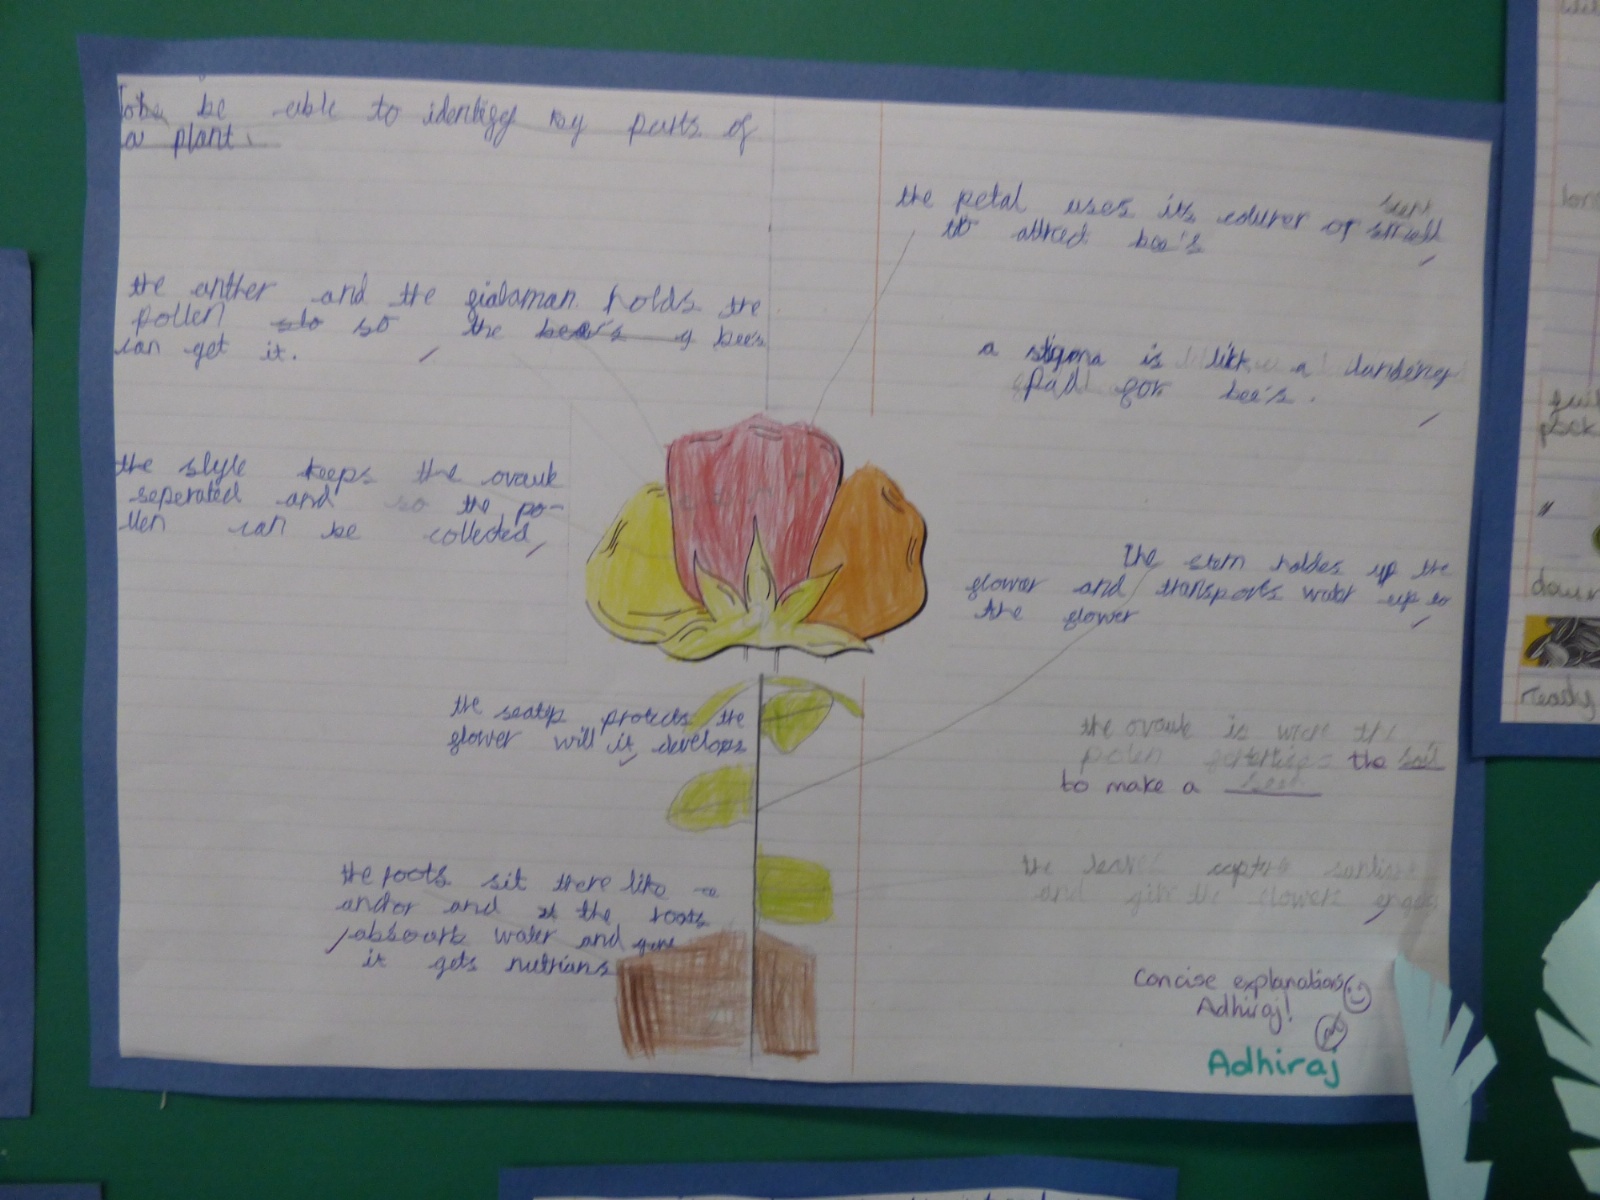 be able to identify key parts of
a plant
the petal uses its colurer or sent smell
to attract bee's
the anther and the gialaman holds the
pollen so the bees
can get it.
a stigma is like a landing
pad for bee's.
the style keeps the ovaule
seperated and so the po-
llen can be collected
The stem holdes up the
flower and transports water up to
the flower
the protects the
flower will it develops
the ovaule is were the
polen the
to make a
the roots sit there like a
anchor and the roots
absourb water and
it gets nutrians
the leaves
and give the flowers
Concise explanations
Adhiraj!
Adhiraj
down
ready